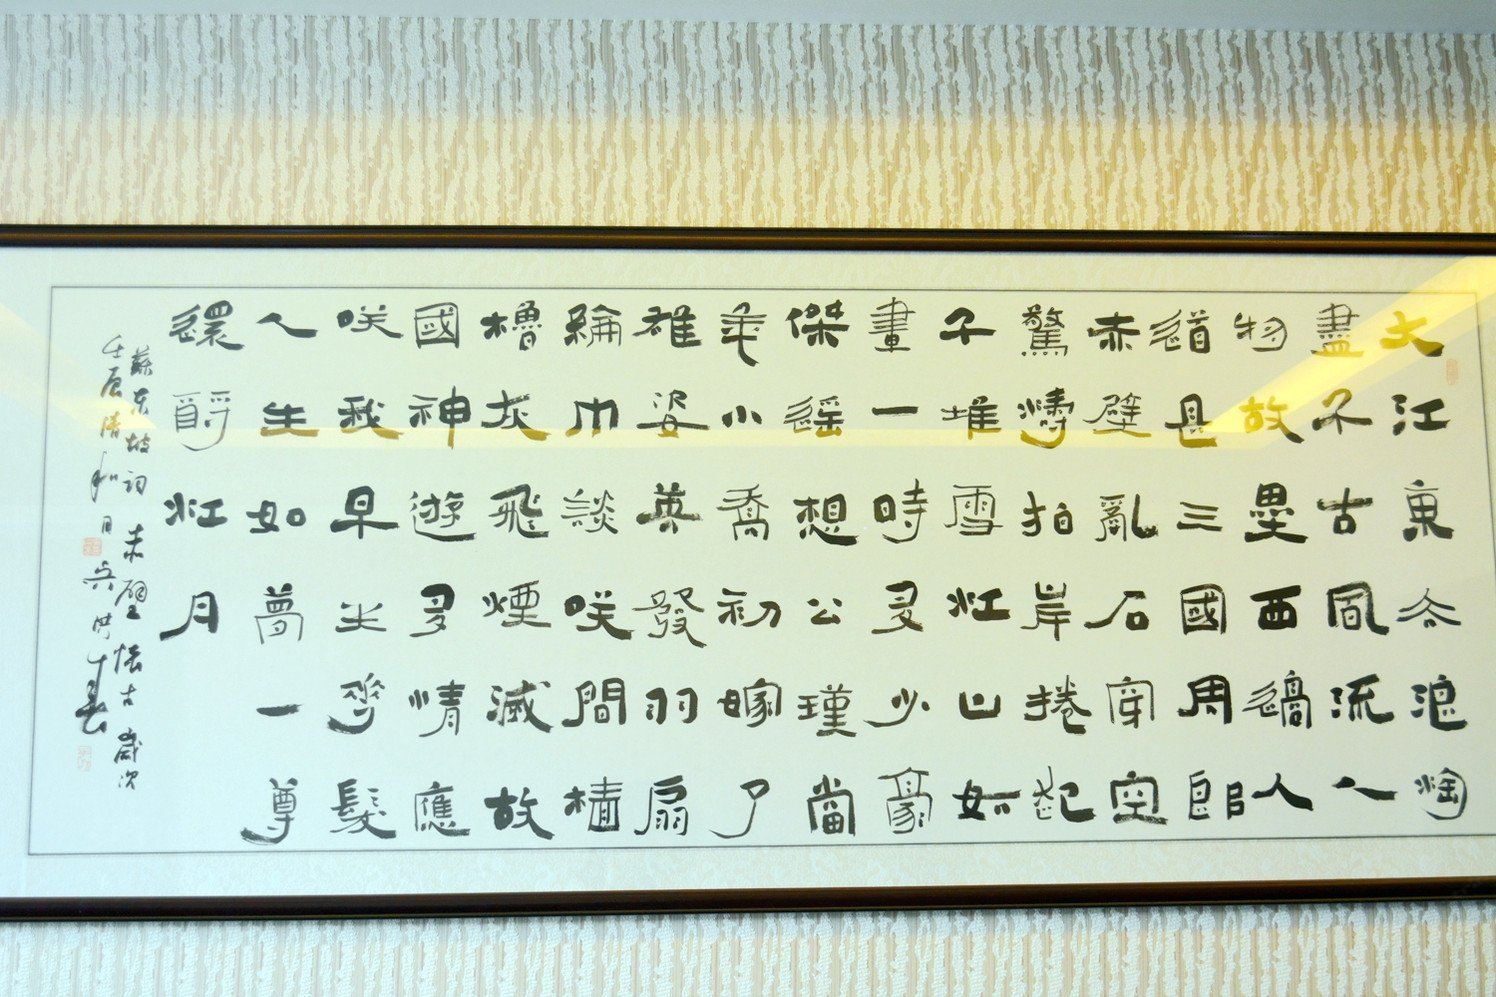 大江東去浪淘
盡千古風流人
物故壘西邊人
道是三國周郎
赤壁亂石穿空
驚濤拍岸捲起
千堆雪江山如
畫一時多少豪
傑遙想公瑾當
年小喬初嫁了
雄姿英發羽扇
綸巾談咲間檣
櫓灰飛煙滅故
國神遊多情應
咲我早生華髮
人生如夢一尊
還酹江月
蘇東坡詞 赤壁懷古 歲次
壬辰清和月